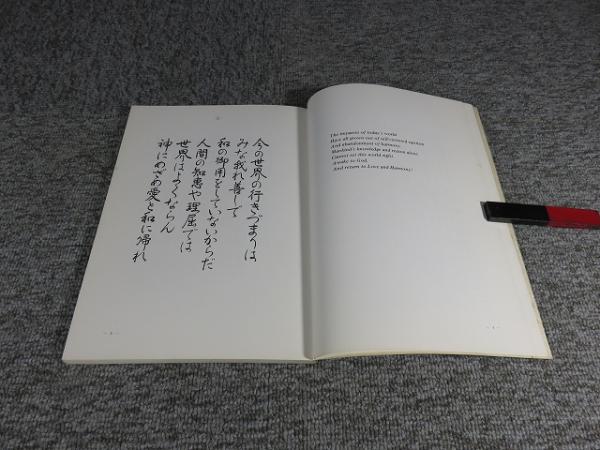 今の世界の行きづまりは
みな我れ善しで
和の御用をしていないからだ
人間の知恵や理屈では
世界はよくならん
神にめざめ愛と和に帰れ
The impasses of today's world
Have all grown out of self-centered egotism
And abandonment of harmony.
Mankind's knowledge and reason alone
Cannot set this world right.
Awake to God,
And return to Love and Harmony!